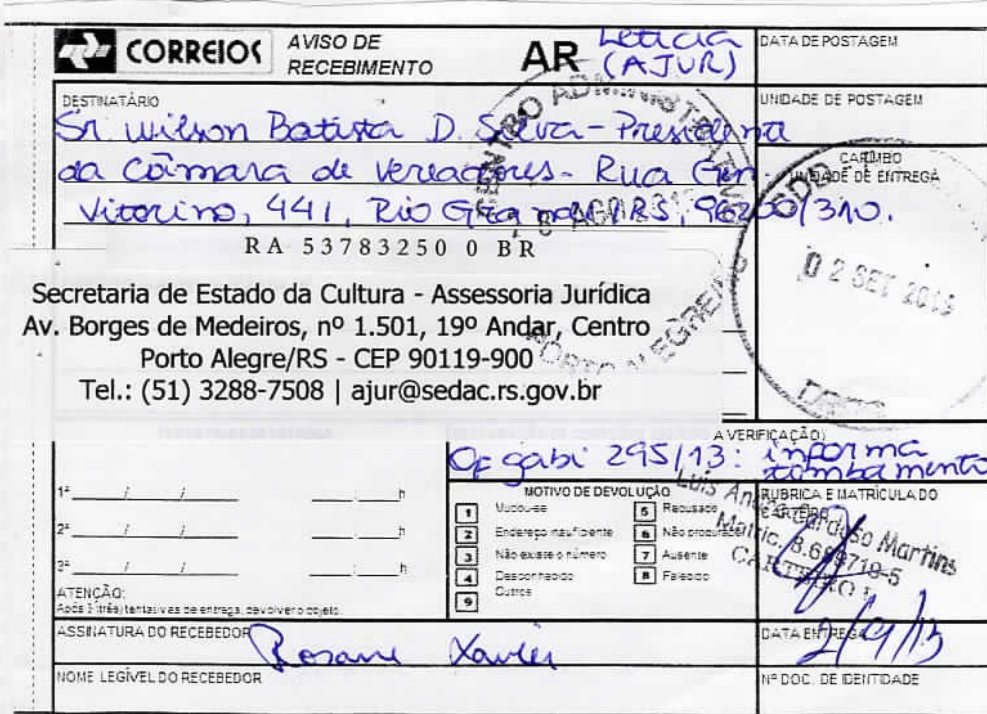 CORREIOS
AVISO DE
RECEBIMENTO
AR
Leticia
(AJUR)
DATA DE POSTAGEM
DESTINATÁRIO
UNIDADE DE POSTAGEM
Sr. Wilson Batista D. Silva - Presidente
da Câmara de Vereadores - Rua Gen.
Vitorino, 441, Rio Grande/RS, 96200/310.
CENTRO ADMINISTRATIVO
AGO
PORTO ALEGRE
CARIMBO
UNIDADE DE ENTREGA
02 SET 2013
RA 53783250 0 BR
Secretaria de Estado da Cultura - Assessoria Jurídica
Av. Borges de Medeiros, nº 1.501, 19º Andar, Centro
Porto Alegre/RS - CEP 90119-900
Tel.: (51) 3288-7508 | ajur@sedac.rs.gov.br
A VERIFICAÇÃO)
Of gabi 295/13: informa
tombamento
1ª ___/___/___ ___:___h
2ª ___/___/___ ___:___h
3ª ___/___/___ ___:___h
ATENÇÃO:
Após 3 (três) tentativas de entrega, devolver o objeto.
MOTIVO DE DEVOLUÇÃO
1 Mudou-se
2 Endereço insuficiente
3 Não existe o número
4 Desconhecido
9 Outros
5 Recusado
6 Não procurado
7 Ausente
8 Falecido
RUBRICA E MATRÍCULA DO
CARTEIRO
Luis André Cardoso Martins
Matric. 8.689.718-5
CARTEIRO I
ASSINATURA DO RECEBEDOR
Rosane Xavier
DATA ENTREGA
2/9/13
NOME LEGÍVEL DO RECEBEDOR
Nº DOC. DE IDENTIDADE